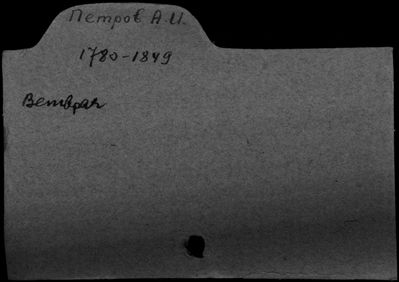 Петров А.И.
1780-1849
Ветврач